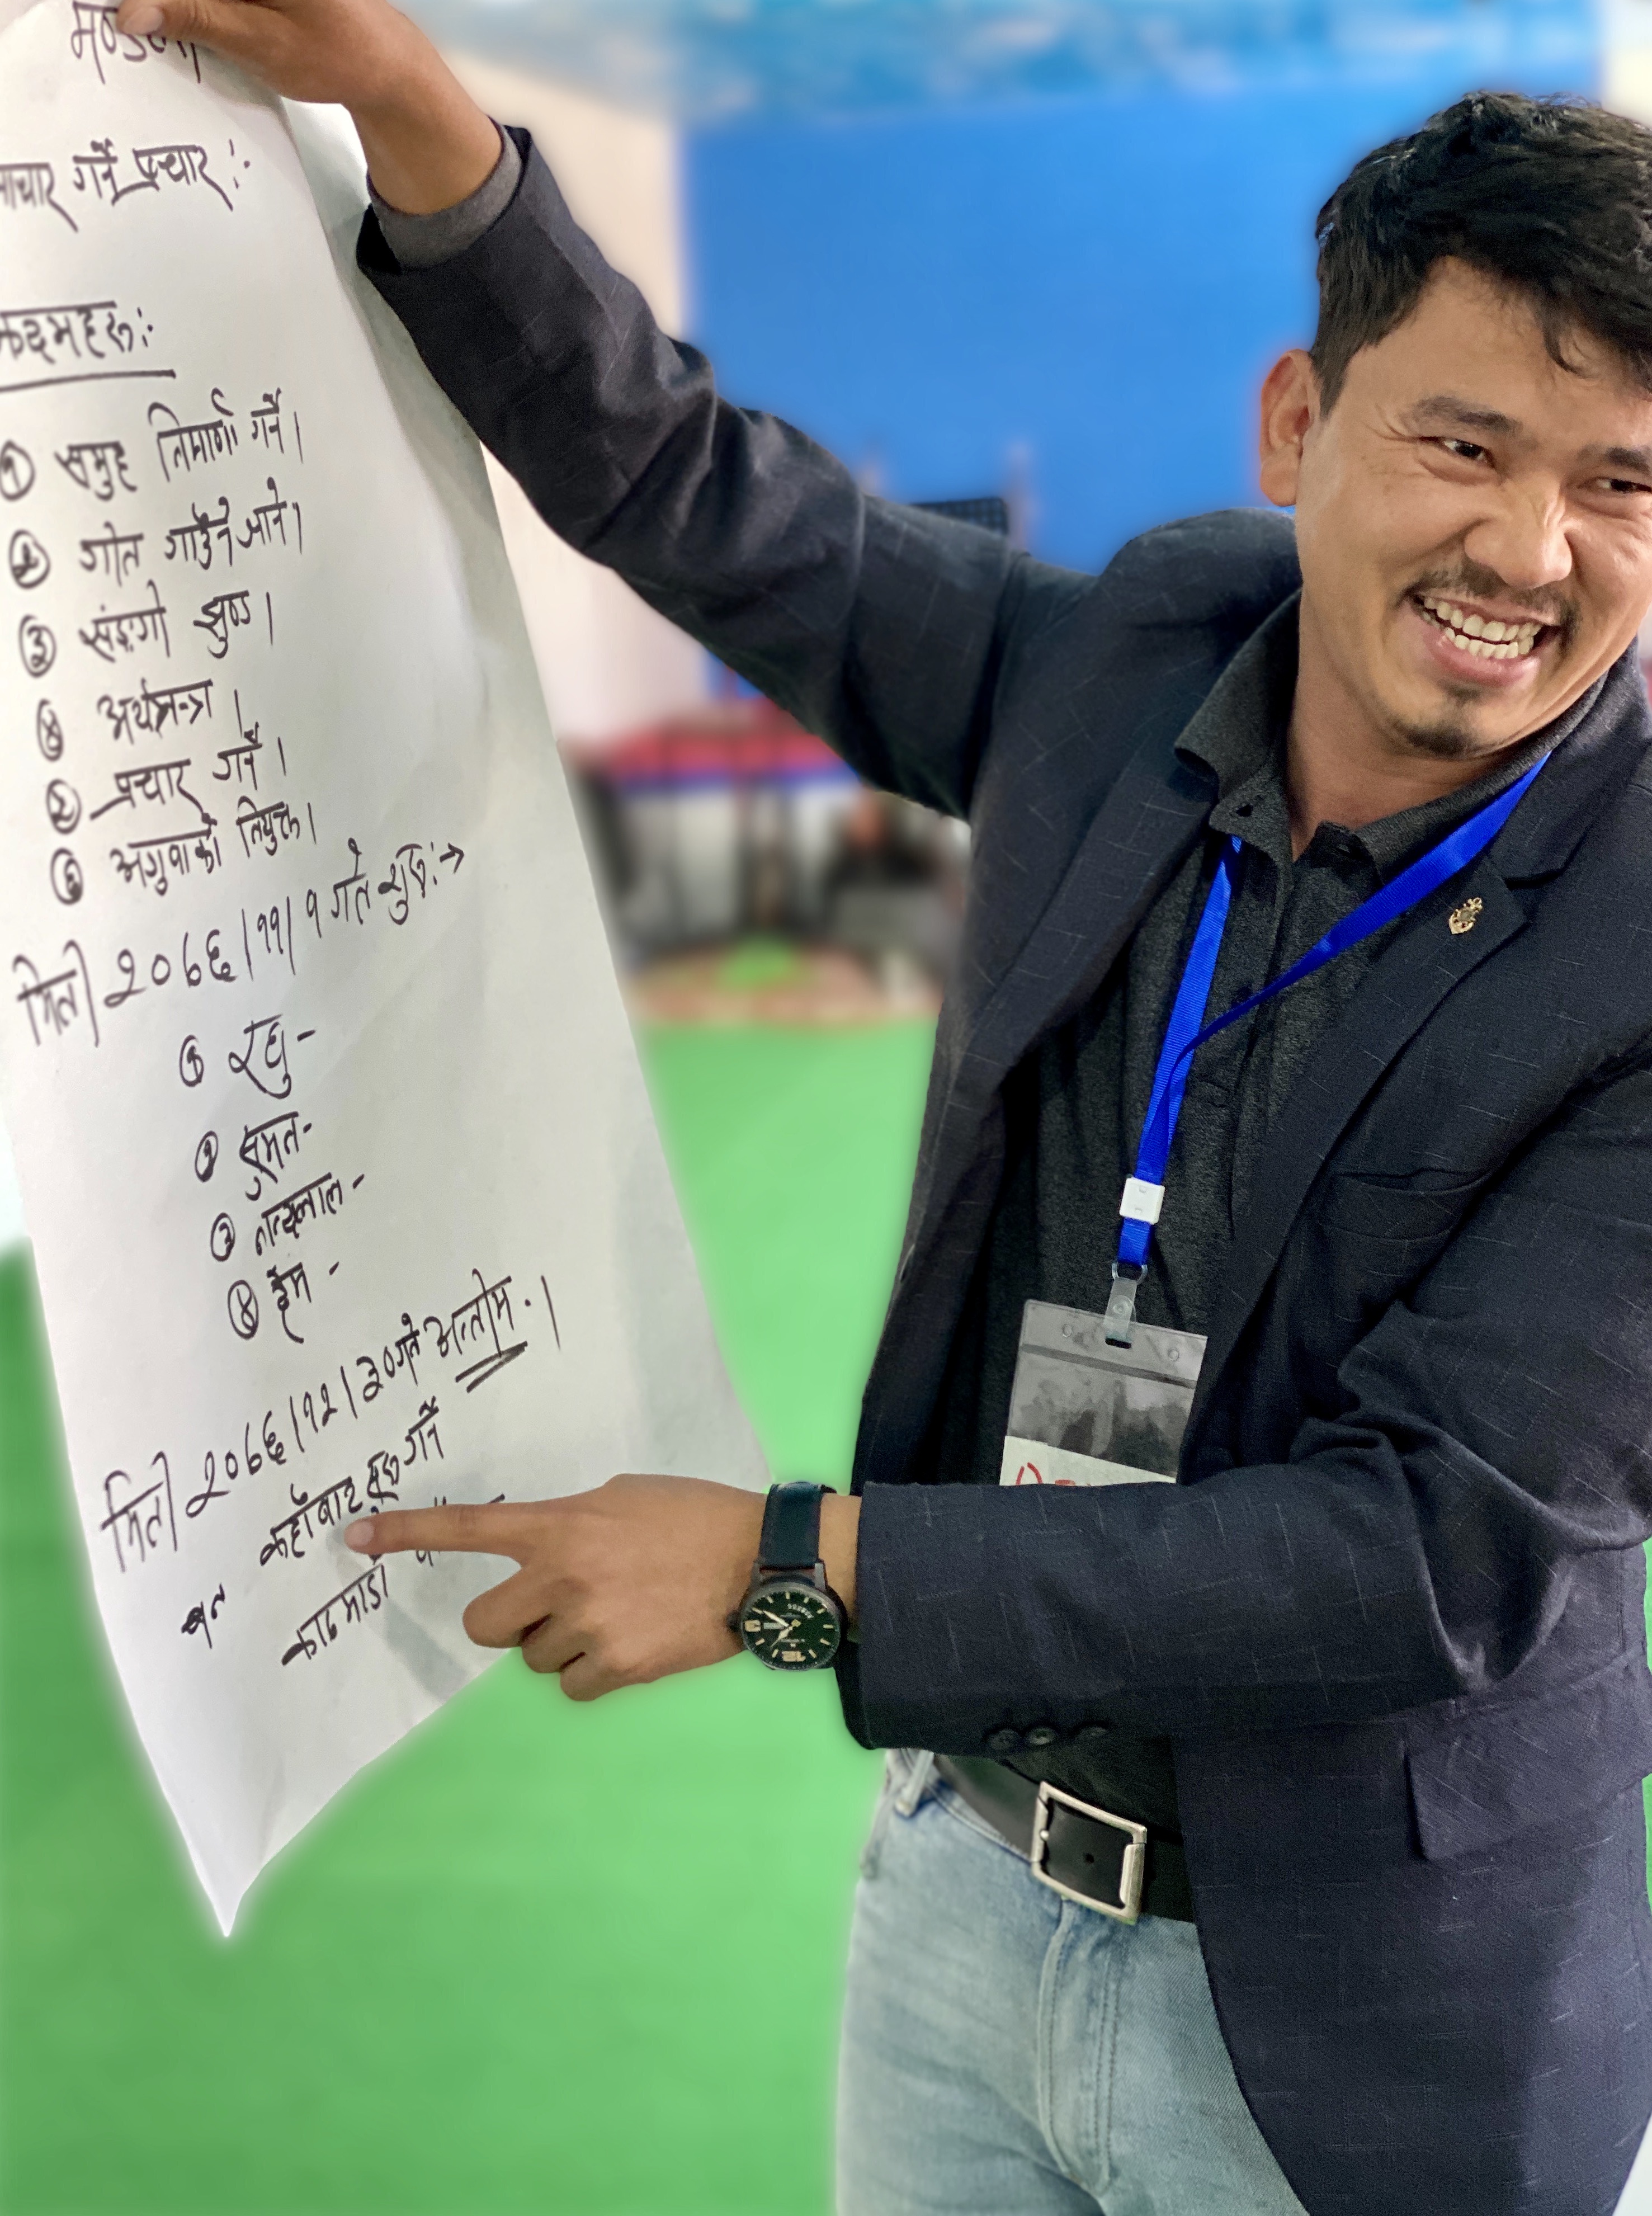 मण्डली
चार गर्ने प्रचार :-
कदमहरू :-
① समुह निर्माण गर्ने।
② गीत गाउँने जाने।
③ संङ्गी झुण्ड।
④ अर्थतन्त्र।
⑤ प्रचार गर्ने।
⑥ अगुवाको नियुक्त।
मिती २०८६/११/१ गते शुरू :→
① रघु -
② सुमन -
③ नन्दलाल -
④ ईम -
मिती २०८६/१२/३० गते अन्तीम।
कहाँबाट सुरू गर्ने
काठमाडौं